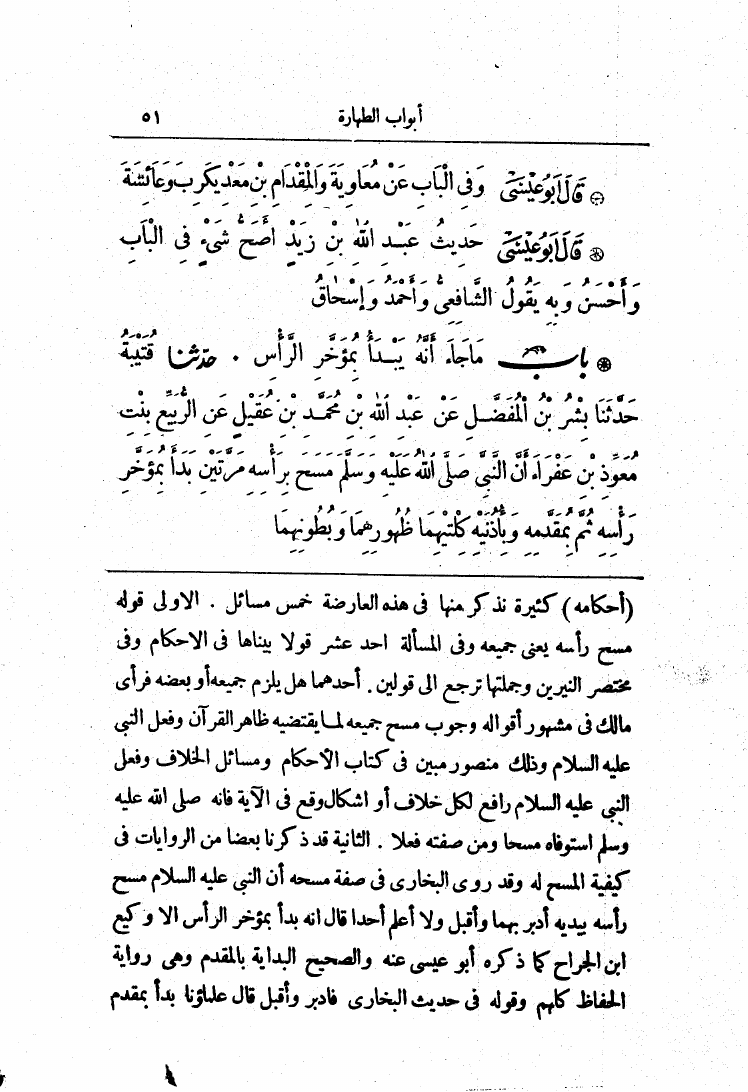 أبواب الطهارة ٥١
قَالَ أَبُو عِيْسَى وَفِي الْبَابِ عَنْ مُعَاوِيَةَ وَالْمِقْدَامِ بْنِ مَعْدِيكَرِبَ وَعَائِشَةَ
قَالَ أَبُو عِيْسَى حَدِيثُ عَبْدِ اللهِ بْنِ زَيْدٍ أَصَحُّ شَيْءٍ فِي الْبَابِ
وَأَحْسَنُ وَبِهِ يَقُولُ الشَّافِعِيُّ وَأَحْمَدُ وَإِسْحَاقُ
بابٌ مَاجَاءَ أَنَّهُ يَبْدَأُ بِمُؤَخَّرِ الرَّأْسِ . حدثنا قُتَيْبَةُ
حَدَّثَنَا بِشْرُ بْنُ الْمُفَضَّلِ عَنْ عَبْدِ اللهِ بْنِ مُحَمَّدِ بْنِ عُقَيْلٍ عَنِ الرُّبَيِّعِ بِنْتِ
مُعَوِّذِ بْنِ عَفْرَاءَ أَنَّ النَّبِيَّ صَلَّى اللهُ عَلَيْهِ وَسَلَّمَ مَسَحَ بِرَأْسِهِ مَرَّتَيْنِ بَدَأَ بِمُؤَخَّرِ
رَأْسِهِ ثُمَّ بِمُقَدَّمِهِ وَبِأُذُنَيْهِ كِلْتَيْهِمَا ظُهُورِهِمَا وَبُطُونِهِمَا
(أحكامه) كثيرة نذكر منها فى هذه العارضة خمس مسائل . الاولى قوله
مسح رأسه يعنى جميعه وفى المسألة احد عشر قولا بيناها فى الاحكام وفى
مختصر النيرين وجملتها ترجع الى قولين . أحدهما هل يلزم جميعه أو بعضه فرأى
مالك فى مشهور أقواله وجوب مسح جميعه لما يقتضيه ظاهر القرآن وفعل النبى
عليه السلام وذلك منصور مبين فى كتاب الأحكام ومسائل الخلاف وفعل
النبى عليه السلام رافع لكل خلاف أو اشكال وقع فى الآية فانه صلى الله عليه
وسلم استوفاه مسحا ومن صفته فعلا . الثانية قد ذكرنا بعضا من الروايات فى
كيفية المسح له وقد روى البخارى فى صفة مسحه أن النبى عليه السلام مسح
رأسه بيديه أدبر بهما وأقبل ولا أعلم أحدا قال انه بدأ بمؤخر الرأس الا وكيع
ابن الجراح كما ذكره أبو عيسى عنه والصحيح البداية بالمقدم وهى رواية
الحفاظ كلهم وقوله فى حديث البخارى فادبر وأقبل قال علماؤنا بدأ بمقدم